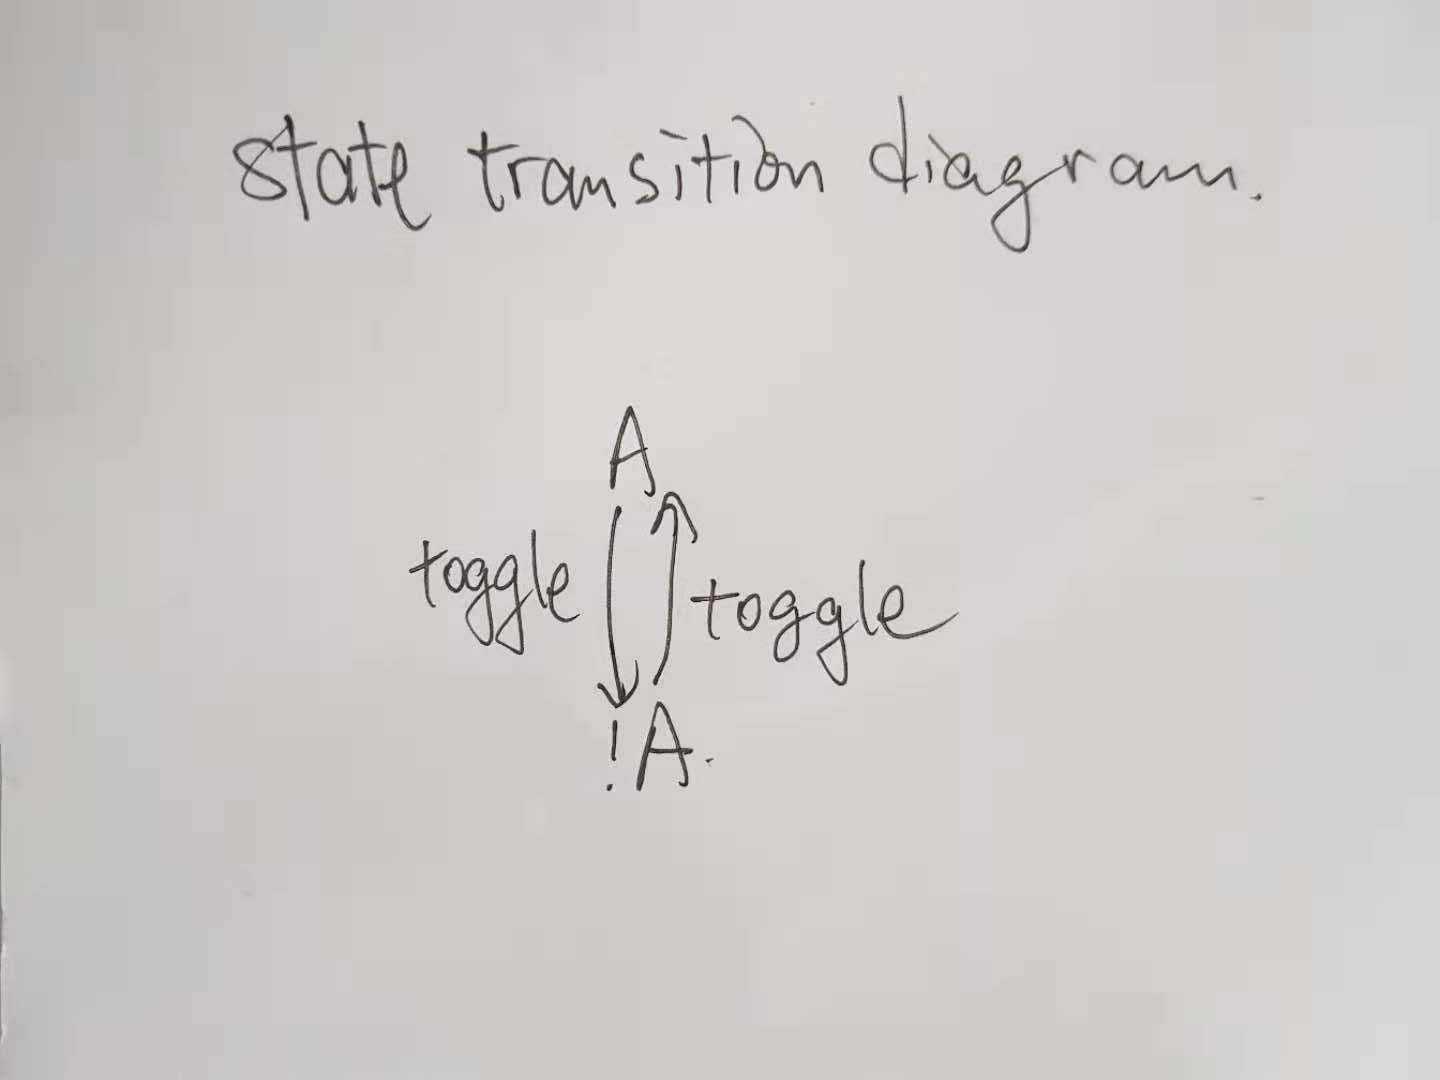 state transition diagram.
A
toggle toggle
!A.